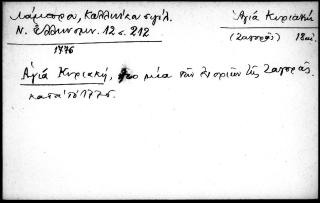 Λάμπρου, Καλλινίκα σιγίλ.
Ν. Ελληνομν. 12 σ. 212
1776
Ἁγιά Κυριακή
(Ζαγορᾶς) 18 αἰ.
Ἁγιά Κυριακή, μία τῶν ἐνοριῶν τῆς Ζαγορᾶς
κατά τό 1776.